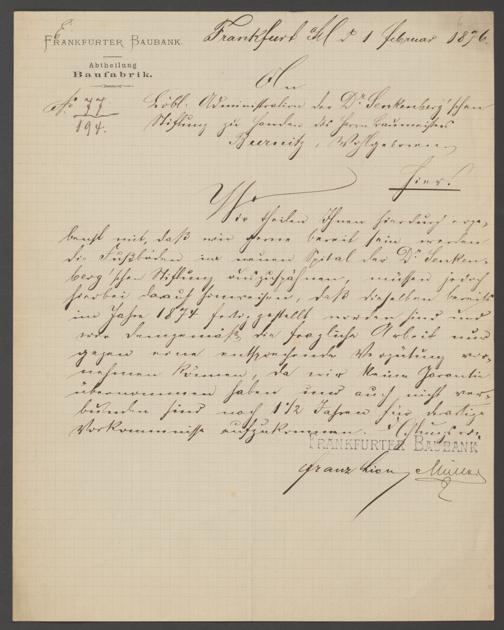 FRANKFURTER BAUBANK.
Frankfurt a/M d 1 Februar 1876.
Abtheilung
Baufabrik.
An
No 77
194.
Löbl. Administration der Dr. Senkenberg'schen
Stiftung zu Handen des Herrn Baumeisters
Wohlgeboren
Hier!
Wir theilen Ihnen hierdurch erge-
benst mit, daß wir gerne bereit sein werden
die Fußböden im neuen Spital der Dr. Senken-
berg'schen Stiftung auszuspähnen, müssen jedoch
hierbei darauf hinweisen, daß dieselben bereits
im Jahre 1874 fertig gestellt worden sind und
wir demgemäß die fragliche Arbeit nur
gegen eine entsprechende Vergütung ver-
nehmen können, da wir keine Garantie
übernommen haben und auch nicht ver-
bunden sind nach 1 1/2 Jahren für derartige
Vorkommnisse aufzukommen.
FRANKFURTER BAUBANK
Franz Müller